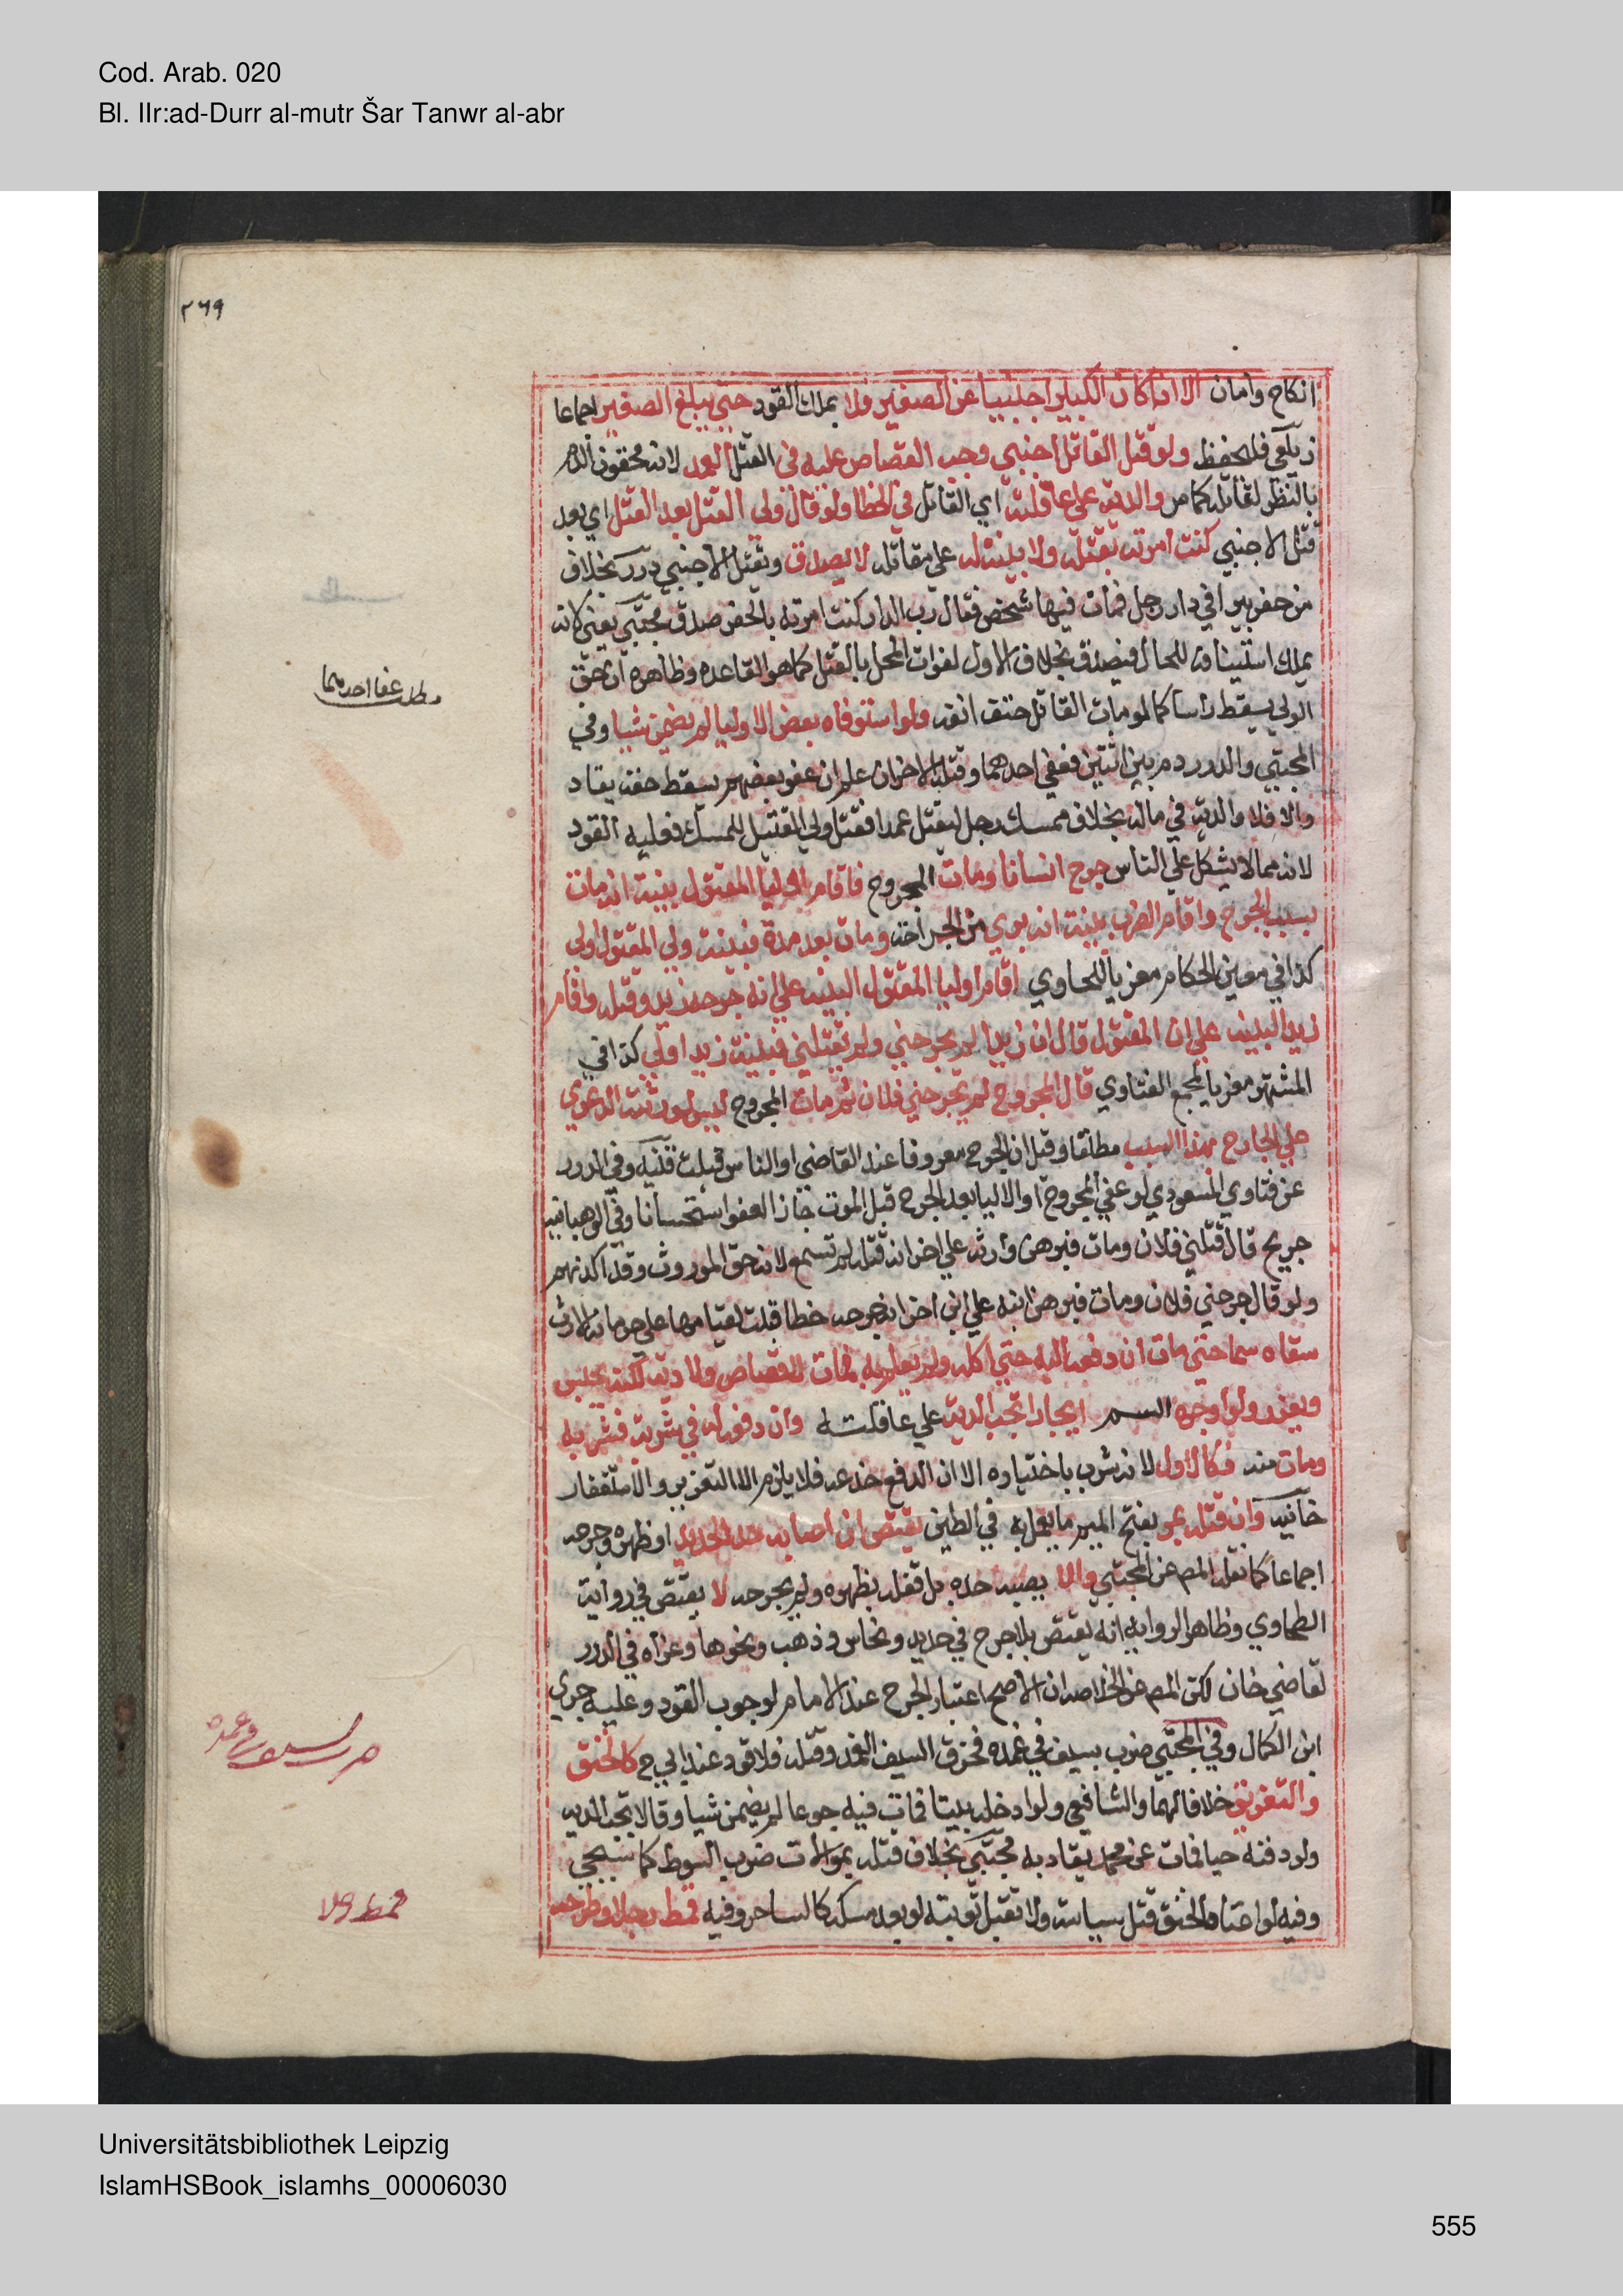 Cod. Arab. 020
Bl. IIr:ad-Durr al-mutr Šar Tanwr al-abr
٢٦٩
انكاح وامان الا اذا كان الكبير اجنبيا عن الصغير فلا يملك القود حتي يبلغ الصغير اجماعا
زيلعي فليحفظ ولو قتل القاتل اجنبي وجب القصاص عليه في القتل العمد لانه محقون الدم
بالنظر لقاتله كما مر والدية علي عاقلته اي القاتل في الخطا ولو قال ولي القتل بعد القتل اي بعد
قتل الاجنبي كنت امرته بقتله ولا بينة له علي مقالته لا يصدق ويقتل الاجنبي درر بخلاف
من حفر بيرا في دار رجل فمات فيها شخص فقال رب الدار كنت امرته بالحفر صدق مجتبي يعني لانه
يملك استينافه للحال فيصدق بخلاف الاول لفوات المحل بالقتل كما هو القاعده وظاهره ان حق
الولي يسقط راسا كما لو مات القاتل حتف انفه ولو استوفاه بعض الاوليا لم يضمن شيا وفي
المجتبي والدرر دم بين اثنين فعفي احدهما وقتله الاخران علم ان عفو بعضهم يسقط حقه يقاد
والا فلا والدية في ماله بخلاف ممسك رجل ليقتل عمدا فقتل ولي القتيل الممسك فعليه القود
لانه مما لا يشكل علي الناس جرح انسانا ومات المجروح فاقام اوليا المقتول بينة انه مات
بسبب الجرح واقام الضرب بينة انه بري من الجراحة ومات بعد مدة فبينة ولي المقتول اولي
كذا في معين الحكام معزيا للحاوي اقام اوليا المقتول البينه علي انه جرحه زيد وقتله واقام
زيد البينه علي ان المقتول قال ان زيدا لم يجرحني ولم يقتلني فبينة زيد اولي كذا في
المشتهر معزيا لمجمع الفتاوي قال المجروح لم يجرحني فلان ثم مات المجروح ليس لورثته الدعوي
علي الجارح بهذا السبب مطلقا وقيل ان الجرح معروفا عند القاضي او الناس قبلت قنيه وفي الدرر
عن فتاوي المسعودي لو عفي المجروح او الاليا بعد الجرح قبل الموت جاز العفو استحسانا وفي الوهبانيه
جريح قال قتلني فلان ومات فبرهن وارثه علي اخر انه قتله لم تسمع لانه حق الموروث وقد اكذبهم
ولو قال جرحني فلان ومات فبرهن ابنه علي ابن اخر انه جرحه خطا قبلت لقيامها علي حرمانه الارث
سقاه سما حتي مات ان دفعه اليه حتي اكله ولم يعلم به فمات لا قصاص ولا دية لكنه يحبس
ويعزر ولو اوجره السم ايجارا تجب الدية علي عاقلته وان دفعه له في شربة فشربه
ومات منه فكالاول لانه شرب باختياره الا ان الدفع خدعه فلا يلزم الا التعزير والاستغفار
خانيه وان قتله بمر بفتح الميم ما يعمل به في الطين يقتص ان اصابه حد الحديد او ظهره وجرحه
اجماعا كما نقله المص عن المجتبي والا يصبه حده بل قتله بظهره ولم يجرحه لا يقتص في رواية
الطحاوي وظاهر الروايه انه يقتص بلا جرح في حديد ونحاس وذهب ونحوها وعزاه في الدرر
لقاضي خان لكن المص عن الخلاصه ان الاصح اعتبار الجرح عند الامام لوجوب القود وعليه جري
ابن الكمال وفي المجتبي ضرب بسيف في غمده فخرق السيف الغمد وقتله فلا قود عند ابي ح كالخنق
والتغريق خلافا لهما والشافعي ولو ادخله بيتا فمات فيه جوعا لم يضمن شيا وقالا تجب الديه
ولو دفنه حيا فمات عن محمد يقاد به مجتبي بخلاف قتله بموالات ضرب السوط كما سيجي
وفيه لو اعتاد الخنق قتل سياسة ولا تقبل توبته لو بعد مسكه كالساحر وفيه قمط رجلا وطرحه
مطلب عفا احدهما
ضرب بسيف في غمده
قمط رجلا
Universitätsbibliothek Leipzig
IslamHSBook_islamhs_00006030
555